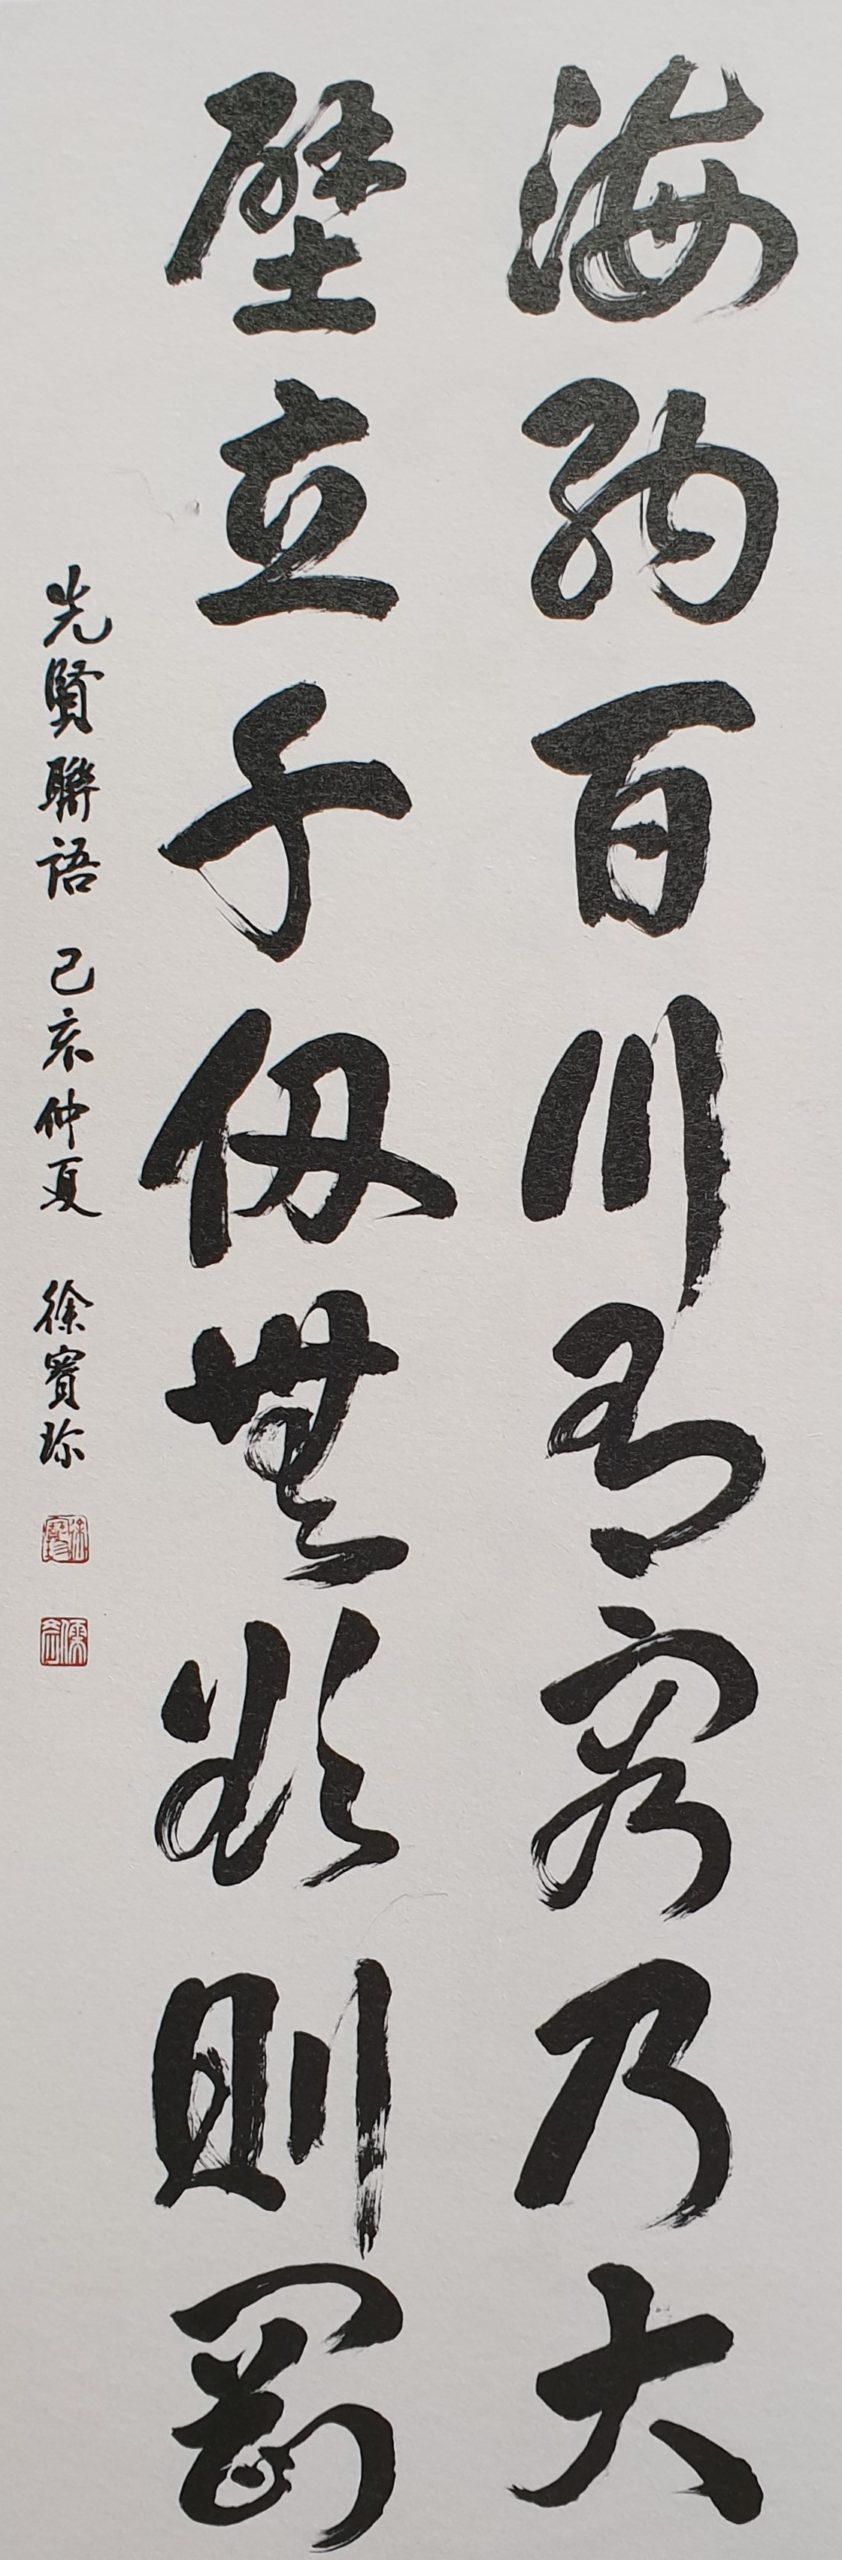 海納百川有容乃大
壁立千仞無欲則剛
先賢聯語 己亥仲夏 徐寶珍
徐寶珍